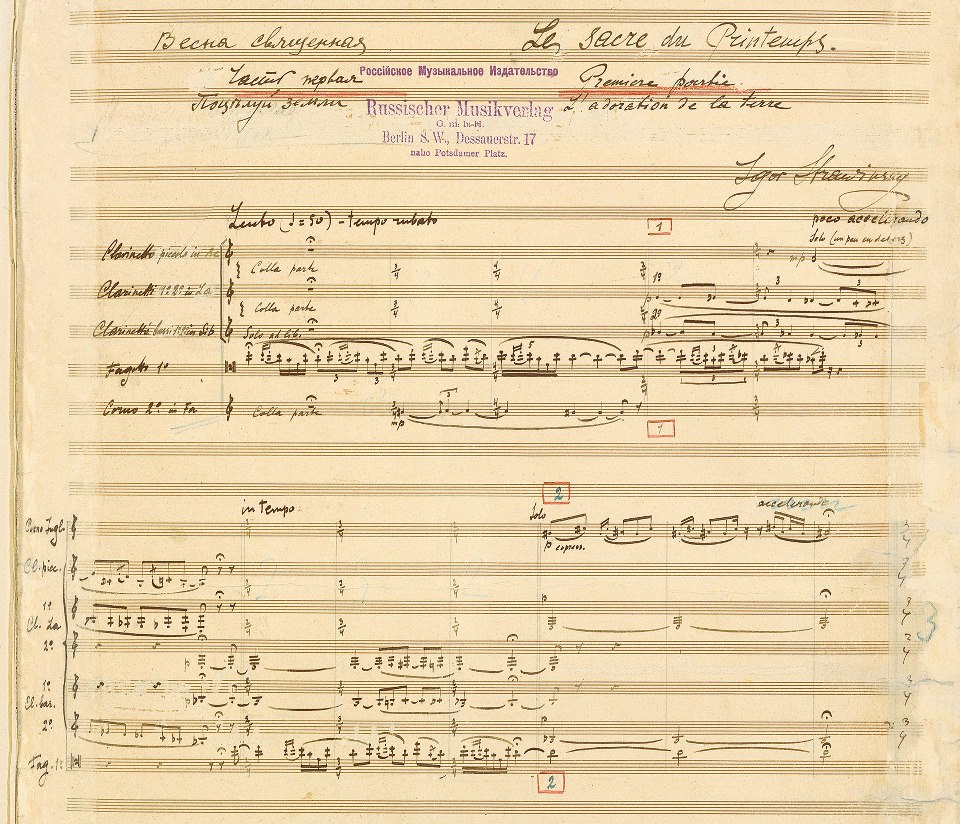 Весна священная
Le Sacre du Printemps.
Часть первая
Россiйское Музыкальное Издательство
Première partie
Поцѣлуй земли
Russischer Musikverlag
L'adoration de la terre
G. m. b. H.
Berlin S. W., Dessauerstr. 17
nahe Potsdamer Platz.
Igor Strawinsky
Lento (♩=50) - tempo rubato
1
poco accelerando
Solo (un peu en dehors)
Clarinetto piccolo in Re
Colla parte
mp
Clarinetti 1º 2º in La
Colla parte
1º
p
2º
Clarinetti bassi 1º 2º in Sib
Solo ad lib.
Fagotto 1º
Corno 2º in Fa
Colla parte
mp
1
2
in tempo
Solo
accelerando
Corno Ingl.
p express.
Cl. picc.
1º
Cl. La
2º
3
1º
Cl. bas.
2º
Fag. 1º
2